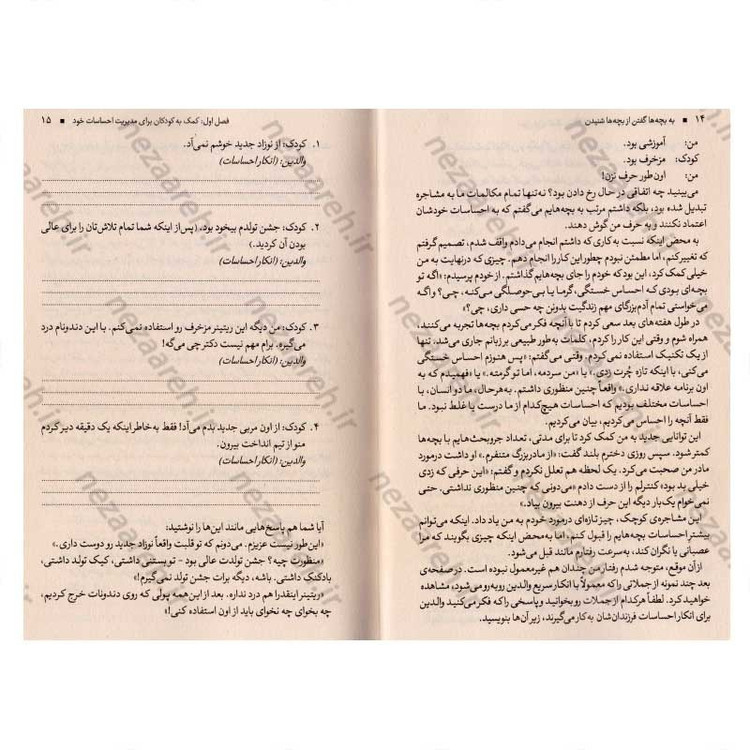 ۱۴ ■ به بچه‌ها گفتن از بچه‌ها شنیدن
من: آموزشی بود.
کودک: مزخرف بود.
من: اون‌طور حرف نزن!
می‌بینید چه اتفاقی در حال رخ دادن بود؟ نه‌تنها تمام مکالمات ما به مشاجره
تبدیل شده بود، بلکه داشتم مرتب به بچه‌هایم می‌گفتم که به احساسات خودشان
اعتماد نکنند و به حرف من گوش دهند.
به محض اینکه نسبت به کاری که داشتم انجام می‌دادم واقف شدم، تصمیم گرفتم
که تغییر کنم، اما مطمئن نبودم چطور این کار را انجام دهم. چیزی که درنهایت به من
خیلی کمک کرد، این بود که خودم را جای بچه‌هایم گذاشتم. از خودم پرسیدم: «اگه تو
بچه‌ای بودی که احساس خستگی، گرما یا بی‌حوصلگی می‌کنه، چی؟ و اگه
می‌خواستی تمام آدم‌بزرگای مهم زندگیت بدونن چه حسی داری، چی؟»
در طول هفته‌های بعد سعی کردم تا با آنچه فکر می‌کردم بچه‌ها تجربه می‌کنند،
همراه شوم و وقتی این کار را کردم، کلمات به‌طور طبیعی بر زبانم جاری می‌شد. تنها
از یک تکنیک استفاده نمی‌کردم. وقتی می‌گفتم: «پس هنوزم احساس خستگی
می‌کنی، با اینکه تازه چُرت زدی.» یا «من سردمه، اما تو گرمته.» یا «فهمیدم که به
اون برنامه علاقه نداری.» واقعاً چنین منظوری داشتم. به‌هرحال، ما دو انسان، با
احساسات مختلف بودیم که احساسات هیچ‌کدام از ما درست یا غلط نبود. ما
فقط آنچه را احساس می‌کردیم، بیان می‌کردیم.
این توانایی جدید به من کمک کرد تا برای مدتی، تعداد جروبحث‌هایم با بچه‌ها
کمتر شود. سپس روزی دخترم بلند گفت: «از مادربزرگ متنفرم.» او داشت درمورد
مادر من صحبت می‌کرد. یک لحظه هم تعلل نکردم و گفتم: «این حرفی که زدی
خیلی بد بود» کنترلم را از دست دادم «می‌دونی که چنین منظوری نداشتی. حتی
نمی‌خوام یک‌بار دیگه این حرف از دهنت بیرون بیاد.»
این مشاجره‌ی کوچک، چیز تازه‌ای درمورد خودم به من یاد داد. اینکه می‌توانم
بیشتر احساسات بچه‌هایم را قبول کنم، اما به‌محض اینکه چیزی بگویند که مرا
عصبانی یا نگران کند، به‌سرعت رفتارم مانند قبل می‌شود.
از آن موقع، متوجه شدم رفتار من چندان هم غیرمعمول نبوده است. در صفحه‌ی
بعد چند نمونه از جملاتی را که معمولاً با انکار سریع والدین روبه‌رو می‌شود، مشاهده
خواهید کرد. لطفاً هرکدام از جملات رو بخوانید و پاسخی را که فکر می‌کنید والدین
برای انکار احساسات فرزندان‌شان به کار می‌گیرند، زیر آن‌ها بنویسید.
فصل اول: کمک به کودکان برای مدیریت احساسات خود ■ ۱۵
۱. کودک: از نوزاد جدید خوشم نمی‌آد.
والدین: (انکار احساسات)
۲. کودک: جشن تولدم بیخود بود. (پس از اینکه شما تمام تلاش‌تان را برای عالی
بودن آن کردید.)
والدین: (انکار احساسات)
۳. کودک: من دیگه این ریتینر مزخرف رو استفاده نمی‌کنم. با این دندونام درد
می‌گیره. برام مهم نیست دکتر چی می‌گه!
والدین: (انکار احساسات)
۴. کودک: از اون مربی جدید بدم می‌آد! فقط به‌خاطر اینکه یک دقیقه دیر کردم
منو از تیم انداخت بیرون.
والدین: (انکار احساسات)
آیا شما هم پاسخ‌هایی مانند این‌ها را نوشتید:
«این‌طور نیست عزیزم. می‌دونم که تو قلبت واقعاً نوزاد جدید رو دوست داری.»
«منظورت چیه؟ جشن تولدت عالی بود - تو بستنی داشتی، کیک تولد داشتی،
بادکنک داشتی. باشه، دیگه برات جشن تولد نمی‌گیرم!»
«ریتینر اینقدرا هم درد نداره. بعد از این‌همه پولی که روی دندونات خرج کردیم،
چه بخوای چه نخوای باید از اون استفاده کنی!»
nezaareh.ir